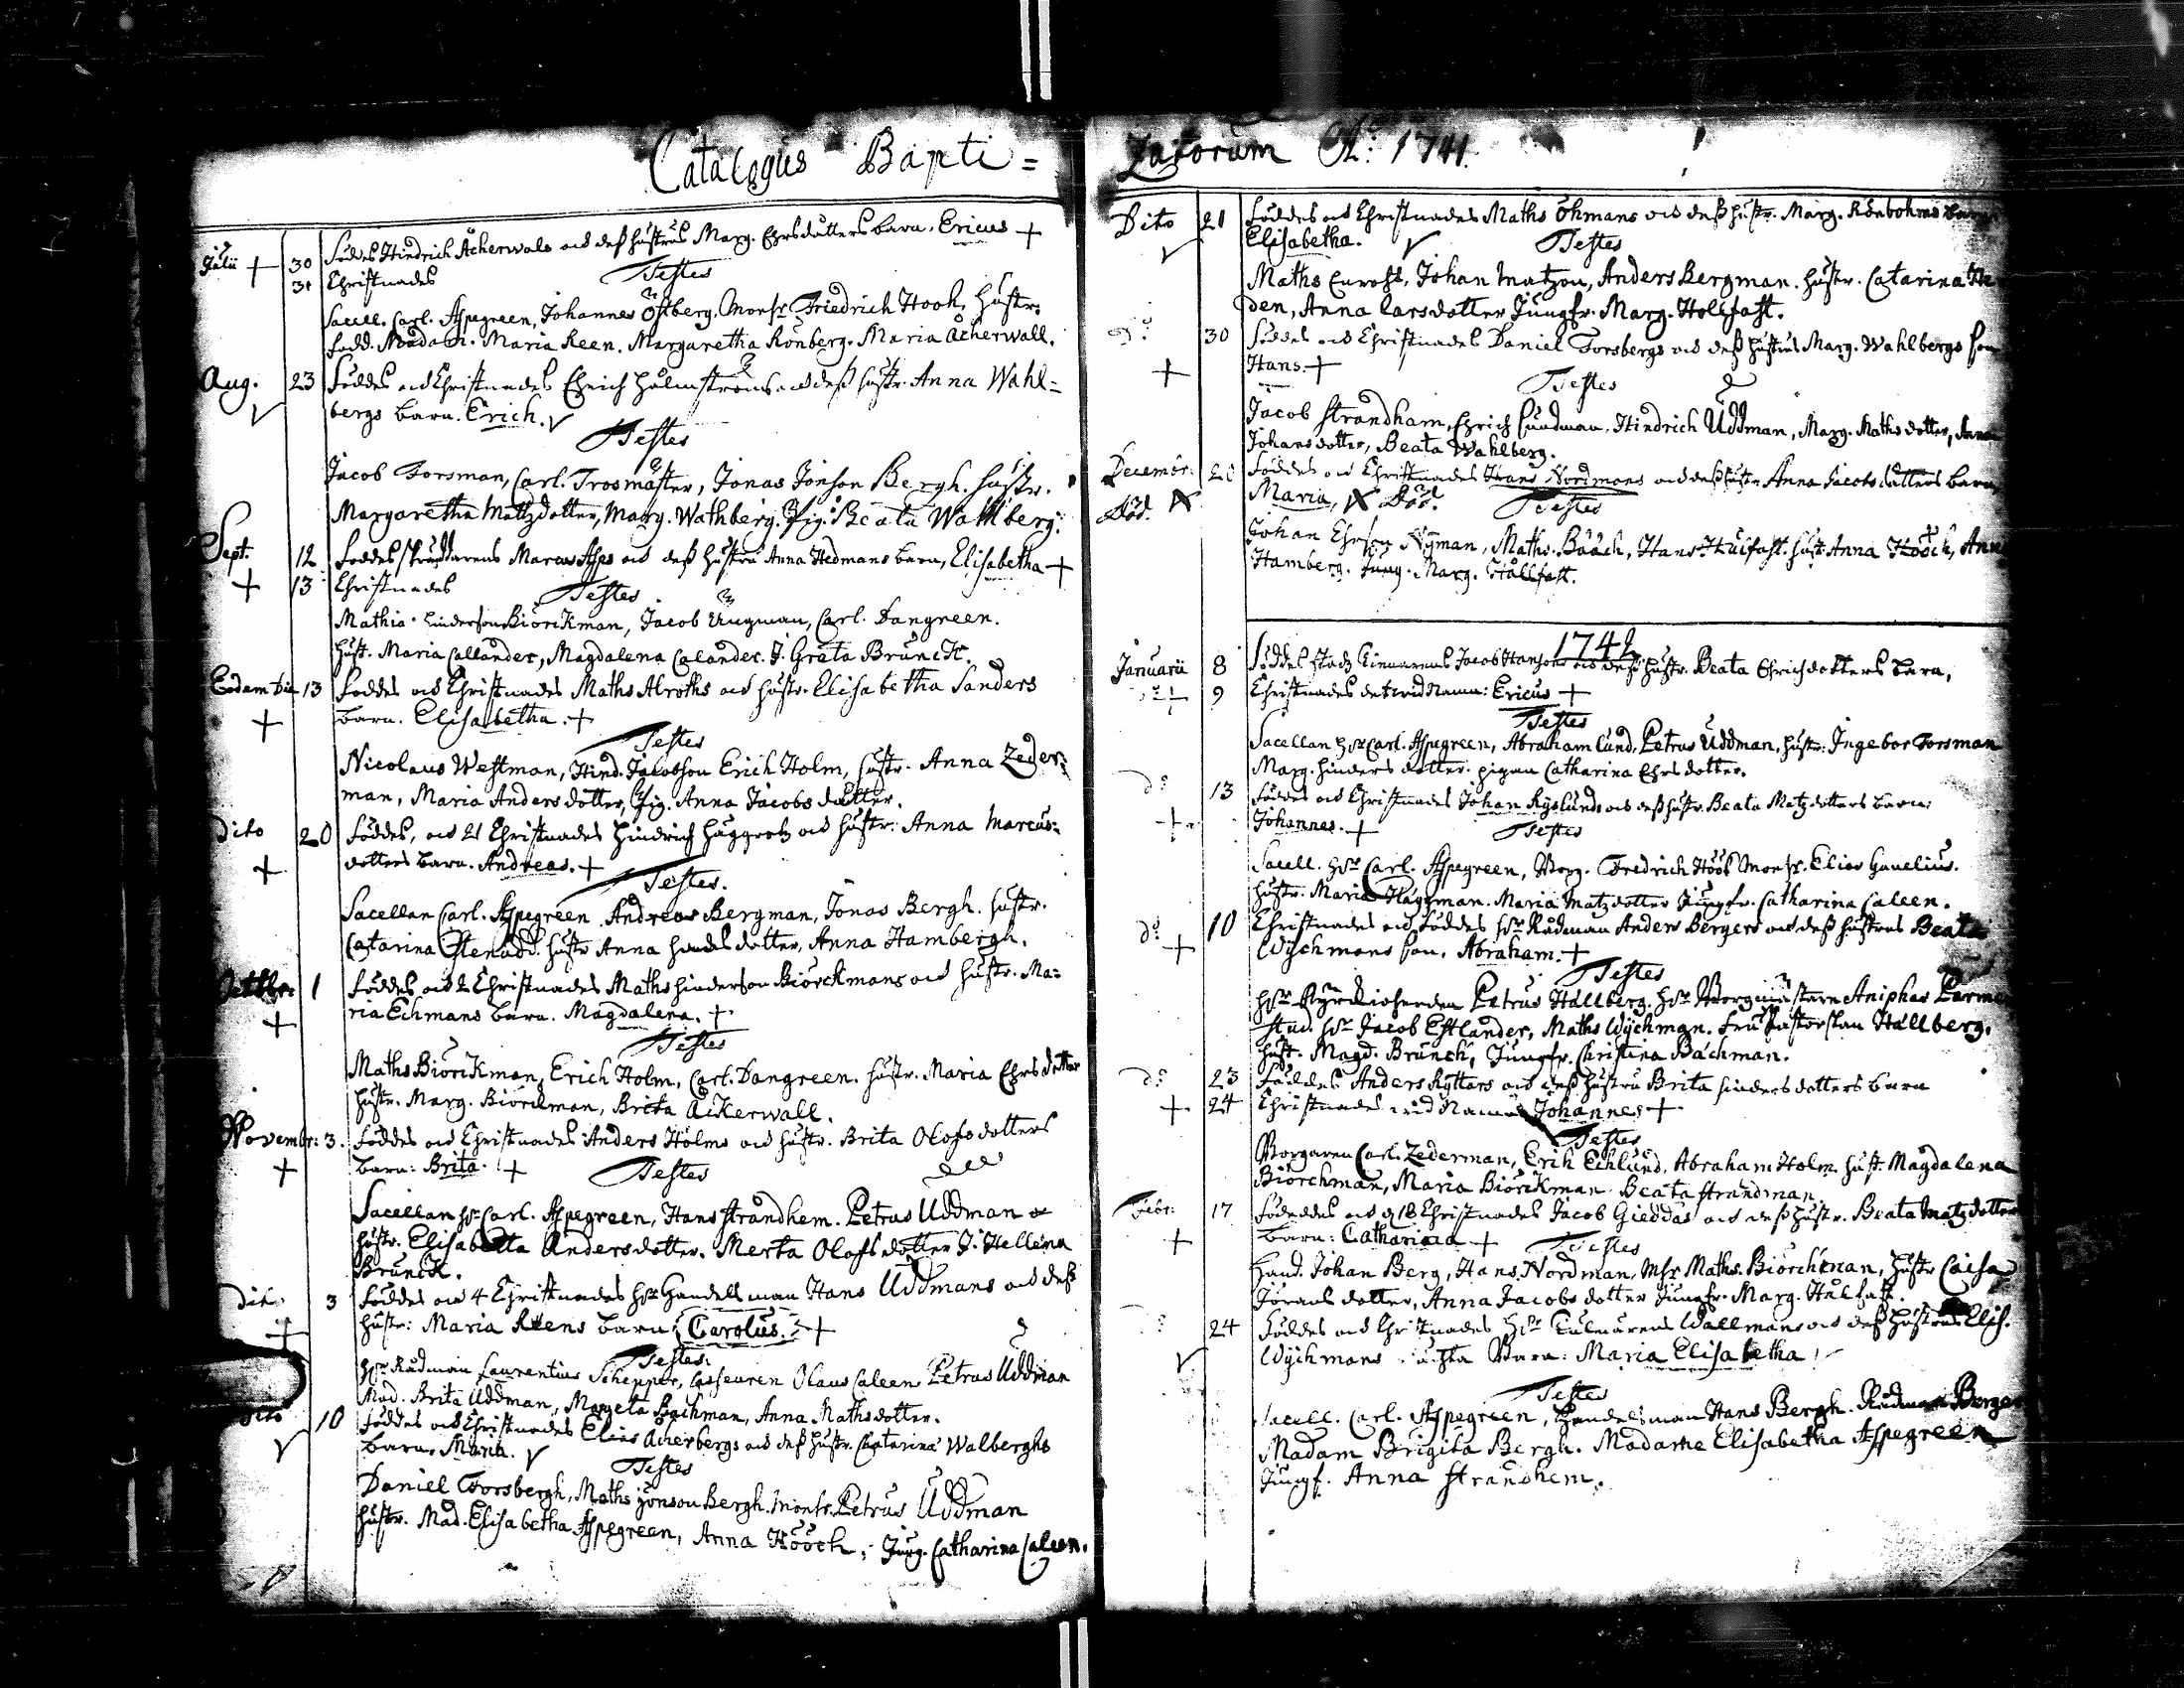 Catalogus Bapti=
Julii + 30 Föddes Hindrich Åcherwals och deß hustrus Marg. Ehrsdotters barn. Ericus +
31 Christnades Testes
Sacell. Carl. Aspegreen, Johannes Östberg, Monsr Friedrich Hook, hustr.
Madam. Maria Keen. Margaretha Rönberg. Maria Åcherwall.
Aug. 23 Föddes och Christnades Ehrich Holmströms och deß hustr. Anna Wahl=
bergs barn. Erich. √
Testes
Jacob Forsman, Carl. Trosmäster, Jonas Jonson Bergh. hustr.
Margaretha Mattzdotter, Marg. Wathberg. Pig. Beata Wathberg.
Sept. 12 Föddes Skräddarens Marcus Asps och deß hustru Anna Hedmans barn, Elisabetha +
+ 13 Christnades Testes
Mathia Hinderson Biörckman, Jacob Ungman, Carl. Dangreen.
hust. Maria Callander, Magdalena Calander. J. Greta Brunck.
Eodem Die 13 Föddes och Christnades Maths Alroths och hustr. Elisabetha Sanders
+ barn. Elisabetha. +
Testes
Nicolaus Westman, Hind. Jacobson Erich Holm, hustr. Anna Zeder=
man, Maria Anders dotter, Pig. Anna Jacobs dotter.
Dito 20 Föddes, och 21 Christnades Hindrich Häggrotz och hustr. Anna Marcus=
+ dotters barn. Andreas. +
Testes.
Sacellan Carl. Aspegreen Andreas Bergman, Jonas Bergh. hustr.
Catarina hustr Anna dotter, Anna Hambergh.
Octobr: 1 Föddes och 2 Christnades Maths hinderson Biörckmans och hustr. Ma=
+ ria Echmans barn. Magdalena. +
Testes
Maths Biörckman, Erich Holm, Carl. Dangreen. hustr. Maria Ehrs dotter
hustr. Marg. Biörckman, Brita Ackerwall.
Novembr: 3. Föddes och Christnades Anders Holms och hustr. Brita Olofsdotters
+ barn: Brita. + Testes
Sacellan hr Carl. Aspegreen, Hans Strandhem. Petrus Uddman
hustr. Elisabetta Andersdotter. Merta Olofsdotter J. Hellena
Brunck.
Dito 3 Föddes och 4 Christnades hr Handelsman Hans Uddmans och deß
+ hustr: Maria Keens barn: Carolus. +
Testes:
hr Rådman Laurentius Schepper, Casseuren Olaus Caleen Petrus Uddman
Mad. Brita Uddman, Margeta Bachman, Anna Mathsdotter.
Dito 10 Föddes och Christnades Elias Åcherbergs och deß hustr. Chatarina Walberghs
√ barn. Maria. √
Testes
Daniel Forsbergh, Maths Jonson Bergh. Monsr. Petrus Uddman
hustr. Mad. Elisabetha Aspegreen, Anna Hööck, Jung. Catharina Caleen.
zatorum Ao: 1741.
Dito 21 Föddes och Christnades Maths Öhmans och deß hustr. Marg. Rönbohms barn
√ Elisabetha. √ Testes
Maths Johan Matzon, Anders Bergman. hustr. Catarina
den, Anna Larsdotter Jungfr. Marg. Hollfast.
do 30 Föddes och Christnades Daniel Forsbergs och deß hustrus Marg. Wahlbergs son
+ Hans. + Testes
Jacob Strandham, Ehrich Sundman, Hindrich Uddman, Marg. Mathsdotter, Anna
Johansdotter, Beata Wahlberg.
Decembr: 20 Föddes och Christnades Hans Nordmans och deß hustr Anna Jacobsdotters barn
Död. Maria, Död. Testes
Johan Ehrson Nyman, Maths. Bååch, Hans Hållfast. hust. Anna Hööck, Ann
Hamberg. Jung. Marg. Hållfast.
1742
Januarii 8 Föddes Jacob Hansons och deß hustr. Beata Ehrichdotters barn,
+ 9 Christnades Namn: Ericus +
Testes
Sacellan Hr Carl. Aspegreen, Abraham Lund, Petrus Uddman, hustr: Ingebor Forsman
Marg. hinders dotter. pigan Catharina Ehrs dotter.
do 13 Föddes och Christnades Johan Ryslunds och deß hustr. Beata Matz dotters barn:
+ Johannes. + Testes
Sacell. Hr Carl. Aspegreen, Borg. Fredrich Höök Monsr. Elias Ganelius.
hustr: Maria Häggman. Maria Matzdotter Jungfr. Catharina Caleen.
do 10 Christnades och Föddes Hr Rådman Anders Bergers och deß hustrus Beata
+ Wychmans son. Abraham. +
Testes
Hr Kyrckioherden Petrus Hållberg. Hr Borgmästarn Aniphas
stud. hr Jacob Estlander, Maths Wychman. Fru Pastorskan Hållberg.
hust. Magd. Brunck, Jungfr. Christina Bachman.
do 23 Föddes Anders Ryttars och deß hustru Brita hinders dotters barn
+ 24 Christnades vid Namn Johannes +
Testes
Borgaren Carl. Zederman, Erik Echlund. Abraham Holm hust. Magdalena
Biörchman, Maria Biörckman Beata Strandman.
Febr: 17 Föddes och 18 Christnades Jacob Gieddas och deß hustr. Beata Matz dotter
+ barn: Catharina + Testes
Hand. Johan Berg, Hans Nordman, Msr Maths. Biörchman, hustr Caisa
Jörans dotter, Anna Jacobs dotter Jungfr. Marg. Hålfast.
24 Föddes och Christnades Hr Wallmans och deß hustrus Elis.
√ Wychmans ächta Barn: Maria Elisabetha √
Testes
Sacell. Carl. Aspegreen, Handelsman Hans Bergh. Rådman Berger
Madam Brigita Bergh. Madame Elisabetha Aspegreen
Jungf. Anna Strandhem.